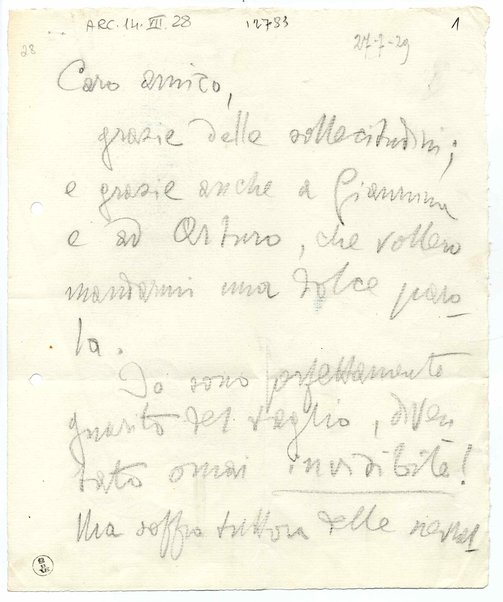 ARC. 14. III. 28 12733 1
28 27-7-29
Caro amico,
grazie delle sollecitudini;
e grazie anche a Giannina
e ad Arturo, che vollero
mandarmi una dolce paro-
la.
Io sono perfettamente
guarito del vaglio, diven
tato omai invidibile!
Ma soffro tuttora delle